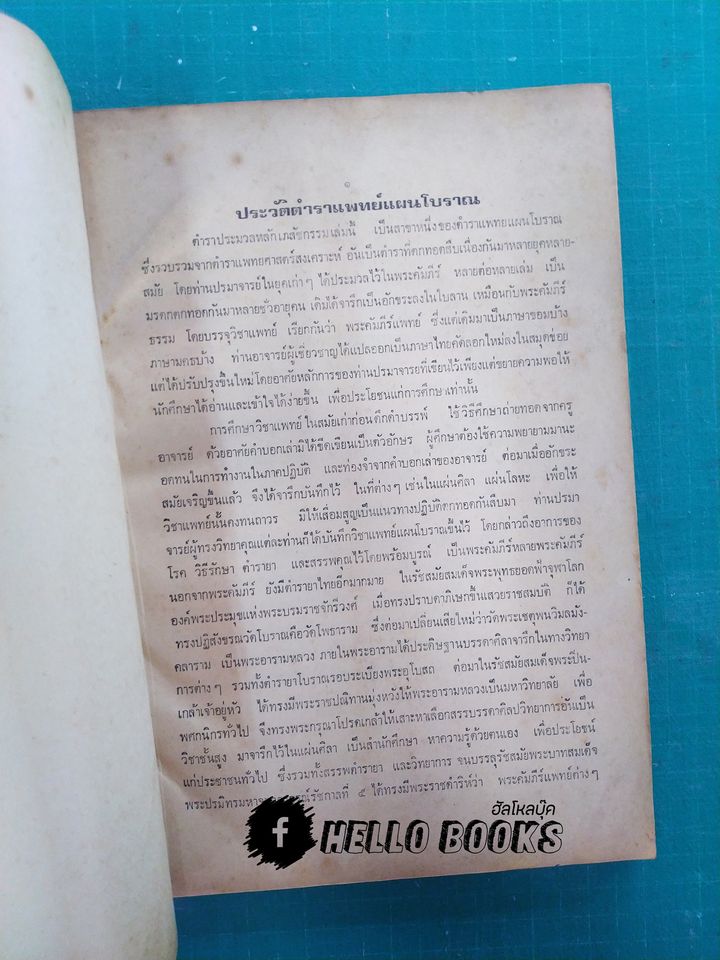 ๑
ประวัติตำราแพทย์แผนโบราณ
ตำราประมวลหลักเภสัชกรรมเล่มนี้ เป็นสาขาหนึ่งของตำราแพทยแผนโบราณ
ซึ่งรวบรวมจากตำราแพทยศาสตร์สงเคราะห์ อันเป็นตำราที่ตกทอดสืบเนื่องกันมาหลายยุคหลาย-
สมัย โดยท่านปรมาจารย์ในยุคเก่าๆ ได้ประมวลไว้ในพระคัมภีร์ หลายต่อหลายเล่ม เป็น
มรดกตกทอดกันมาหลายชั่วอายุคน เดิมได้จารึกเป็นอักขระลงในใบลาน เหมือนกับพระคัมภีร์
ธรรม โดยบรรจุวิชาแพทย์ เรียกกันว่า พระคัมภีร์แพทย์ ซึ่งแต่เดิมมาเป็นภาษาขอมบ้าง
ภาษามคธบ้าง ท่านอาจารย์ผู้เชี่ยวชาญได้แปลออกเป็นภาษาไทยคัดลอกใหม่ลงในสมุดข่อย
แต่ได้ปรับปรุงขึ้นใหม่โดยอาศัยหลักการของท่านปรมาจารย์ที่เขียนไว้เพียงแต่ขยายความพอให้
นักศึกษาได้อ่านและเข้าใจได้ง่ายขึ้น เพื่อประโยชน์แก่การศึกษาเท่านั้น
การศึกษาวิชาแพทย์ ในสมัยเก่าก่อนดึกดำบรรพ์ ใช้วิธีศึกษาถ่ายทอดจากครู
อาจารย์ ด้วยอาศัยคำบอกเล่ามิได้ขีดเขียนเป็นตัวอักษร ผู้ศึกษาต้องใช้ความพยายามมานะ
อดทนในการทำงานในภาคปฏิบัติ และท่องจำจากคำบอกเล่าของอาจารย์ ต่อมาเมื่ออักขระ
สมัยเจริญขึ้นแล้ว จึงได้จารึกบันทึกไว้ ในที่ต่างๆ เช่นในแผ่นศิลา แผ่นโลหะ เพื่อให้
วิชาแพทย์นั้นคงทนถาวร มิให้เสื่อมสูญเป็นแนวทางปฏิบัติตกทอดกันสืบมา ท่านปรมา
จารย์ผู้ทรงวิทยาคุณแต่ละท่านก็ได้บันทึกวิชาแพทย์แผนโบราณขึ้นไว้ โดยกล่าวถึงอาการของ
โรค วิธีรักษา ตำรายา และสรรพคุณไว้โดยพร้อมบูรณ์ เป็นพระคัมภีร์หลายพระคัมภีร์
นอกจากพระคัมภีร์ ยังมีตำรายาไทยอีกมากมาย ในรัชสมัยสมเด็จพระพุทธยอดฟ้าจุฬาโลก
องค์พระประมุขแห่งพระบรมราชจักรีวงศ์ เมื่อทรงปราบดาภิเษกขึ้นเสวยราชสมบัติ ก็ได้
ทรงปฏิสังขรณวัดโบราณคือวัดโพธาราม ซึ่งต่อมาเปลี่ยนเสียใหม่ว่าวัดพระเชตุพนวิมลมัง-
คลาราม เป็นพระอารามหลวง ภายในพระอารามได้ประดิษฐานบรรดาศิลาจารึกในทางวิทยา
การต่างๆ รวมทั้งตำรายาโบราณรอบระเบียงพระอุโบสถ ต่อมาในรัชสมัยสมเด็จพระปิ่น-
เกล้าเจ้าอยู่หัว ได้ทรงมีพระราชปณิทานมุ่งหวังให้พระอารามหลวงเป็นมหาวิทยาลัย เพื่อ
พศกนิกรทั่วไป จึงทรงพระกรุณาโปรดเกล้าให้เสาะหาเลือกสรรบรรดาศิลปวิทยาการอันเป็น
วิชาชั้นสูง มาจารึกไว้ในแผ่นศิลา เป็นสำนักศึกษา หาความรู้ด้วยตนเอง เพื่อประโยชน์
แก่ประชาชนทั่วไป ซึ่งรวมทั้งสรรพตำรายา และวิทยาการ จนบรรลุรัชสมัยพระบาทสมเด็จ
พระปรมิทรมหา รัชกาลที่ ๕ ได้ทรงมีพระราชดำริห์ว่า พระคัมภีร์แพทย์ต่างๆ
ฮัลโหลบุ๊ค
f HELLO BOOKS